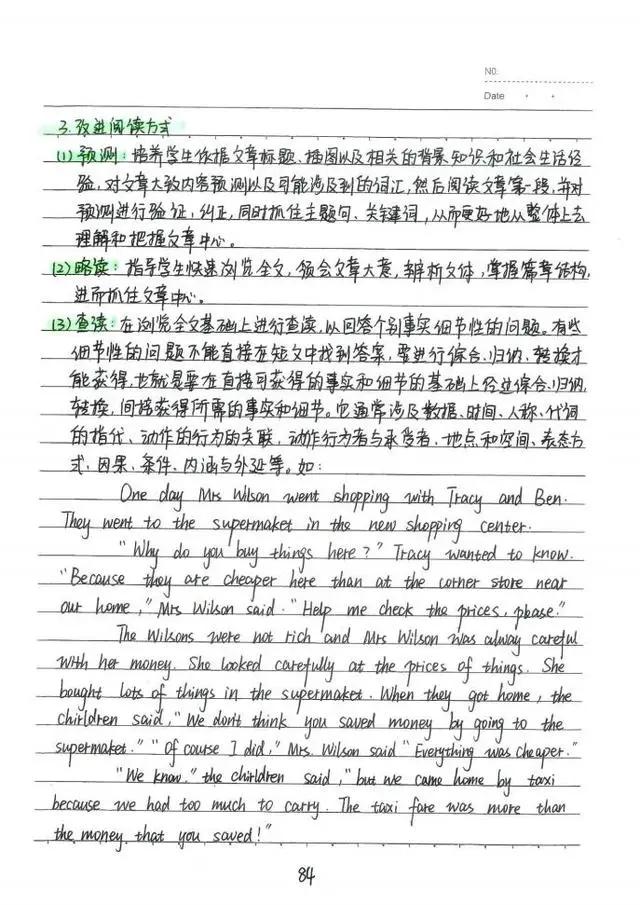 NO.
Date
3.改进阅读方式
(1)预测：培养学生依据文章标题、插图以及相关的背景知识和社会生活经
验，对文章大致内容预测以及可能涉及到的词汇，然后阅读文章第一段，并对
预测进行验证，纠正，同时抓住主题句、关键词，从而更好地从整体上去
理解和把握文章中心。
(2)略读：指导学生快速浏览全文，领会文章大意，辨析文体，掌握篇章结构，
进而抓住文章中心。
(3)查读：在浏览全文基础上进行查读，以回答个别事实细节性的问题。有些
细节性的问题不能直接在短文中找到答案，要进行综合、归纳、转换才
能获得，也就是要在直接可获得的事实和细节的基础上经进综合、归纳、
转换，间接获得所需的事实和细节。它通常涉及数据、时间、人称、代词
的指代、动作的行为的关联，动作行为者与承受者、地点和空间、表态方
式、因果、条件、内涵与外延等。如：
One day Mrs Wilson went shopping with Tracy and Ben.
They went to the supermaket in the new shopping center.
"Why do you buy things here?" Tracy wanted to know.
"Because they are cheaper here than at the corner store near
our home," Mrs Wilson said. "Help me check the prices, please."
The Wilsons were not rich and Mrs Wilson was alway careful
with her money. She looked carefully at the prices of things. She
bought lots of things in the supermaket. When they got home, the
chirldren said, "We don't think you saved money by going to the
supermaket." "Of course I did," Mrs. Wilson said "Everything was cheaper."
"We know." the chirldren said, "but we came home by taxi
because we had too much to carry. The taxi fare was more than
the money that you saved!"
84